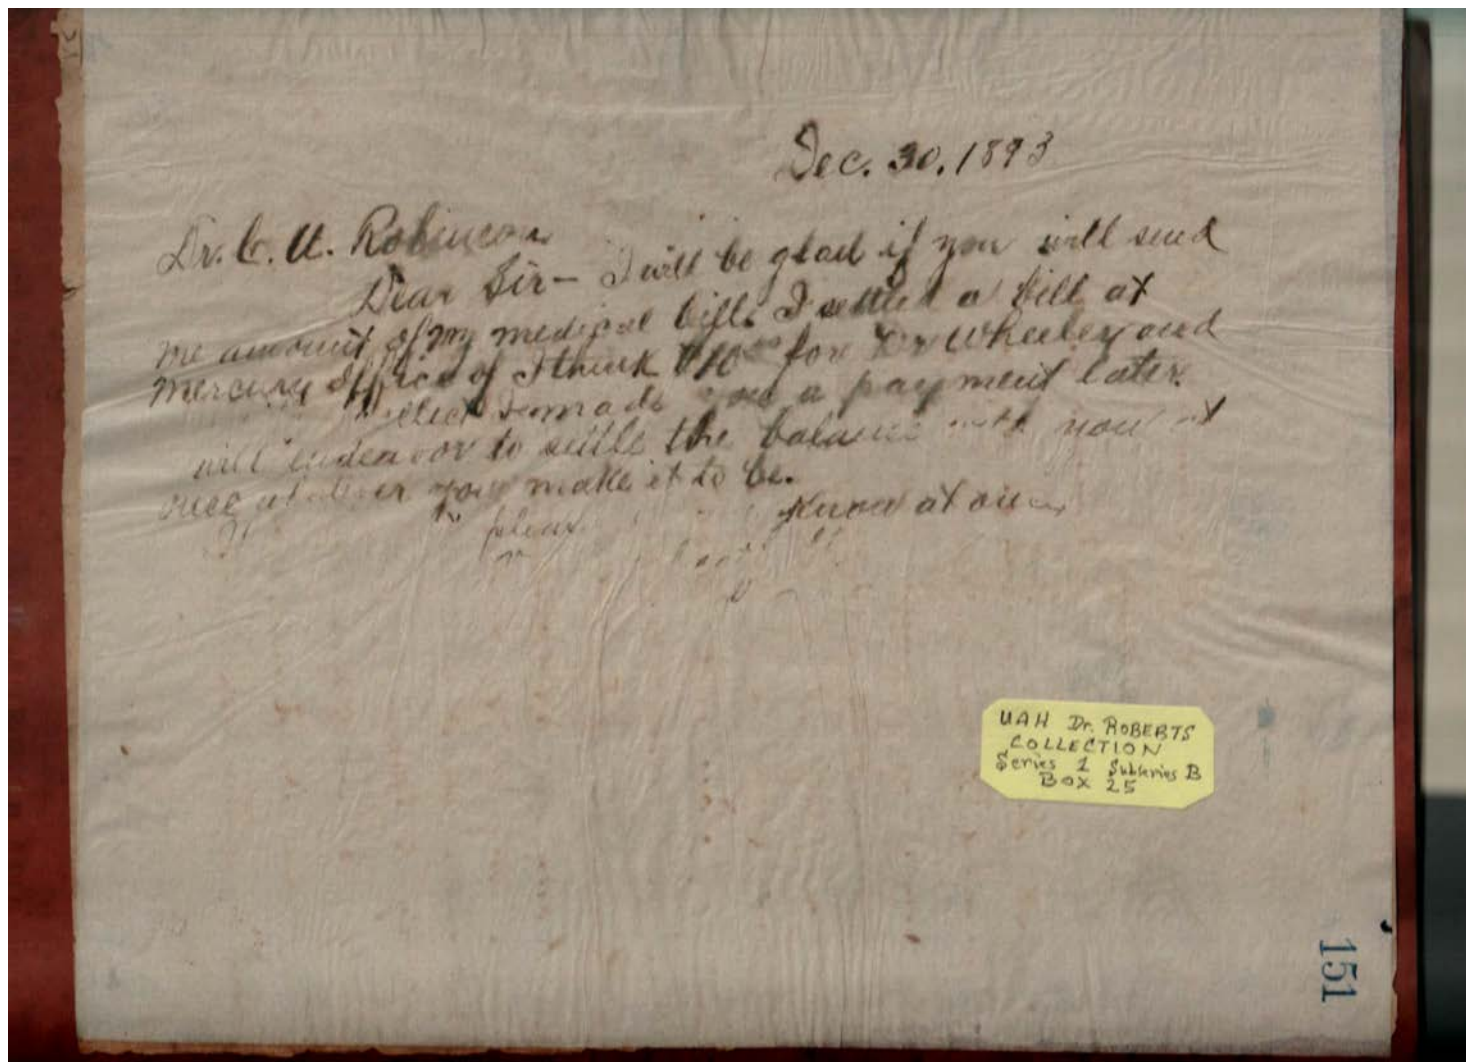 Dec. 30, 1893
Dr. C. U. Robinson
Dear Sir - I will be glad if you will send
me amount of my medical bills I settled a bill at
Mercury Office of I think $10 00 for Dr Wheeler and
I made you a payment later.
will endeavor to settle the balance with you at
once whatever you make it to be.
please know at once
UAH Dr. ROBERTS
COLLECTION
Series 1 Subseries B
BOX 25
151